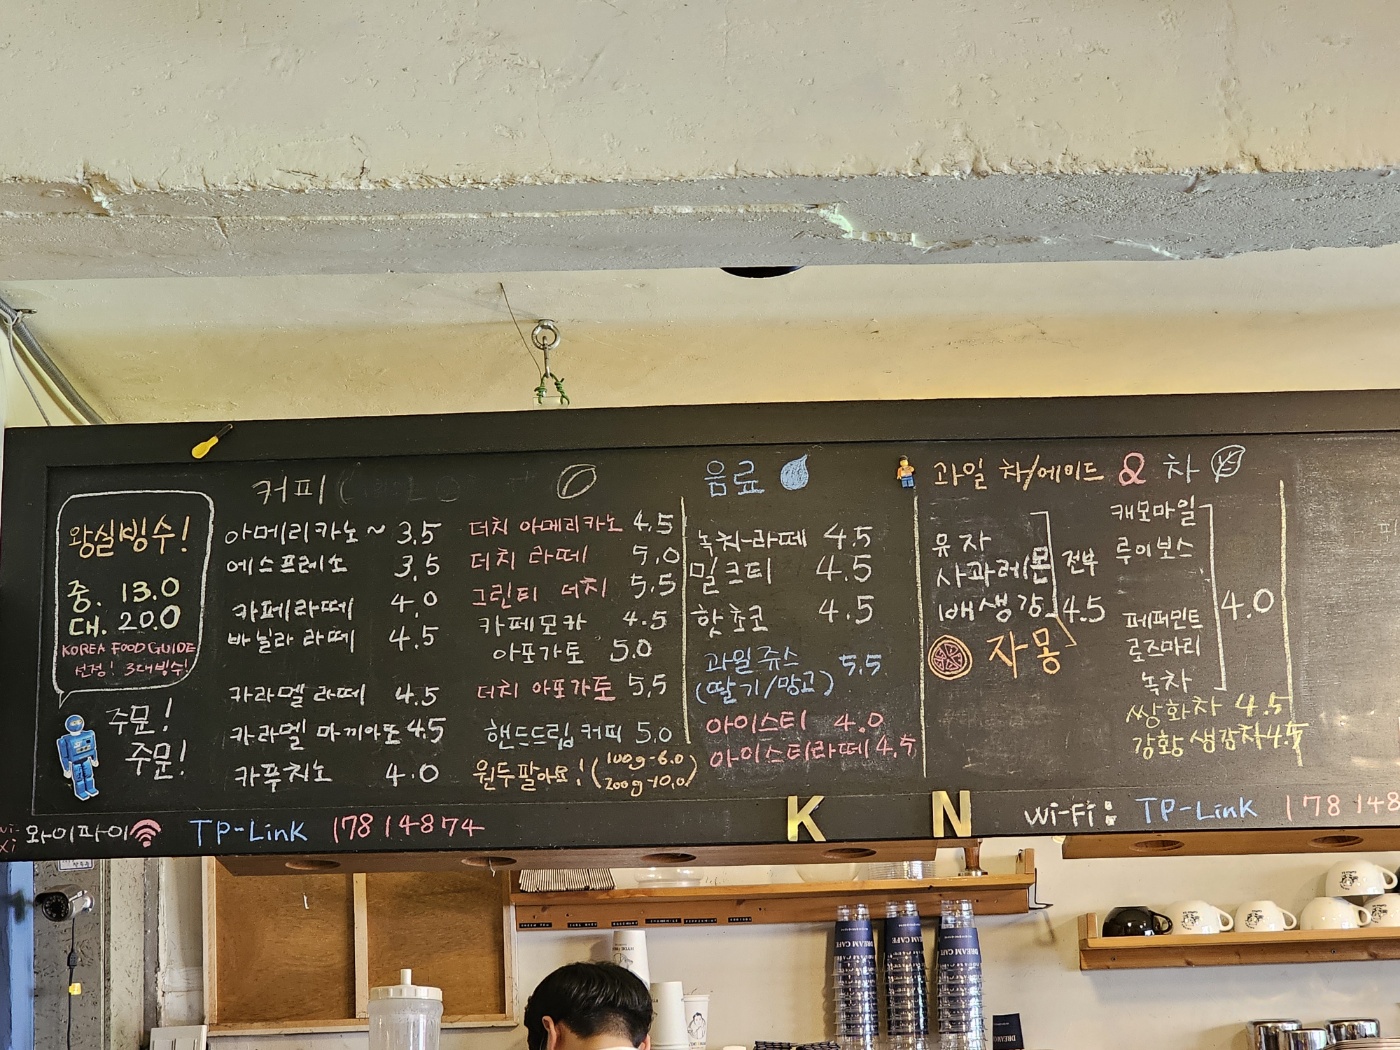 왕실빙수!
중. 13.0
대. 20.0
KOREA FOOD GUIDE
선정! 3대빙수!
주문!
주문!
커피
아메리카노~ 3.5
에스프레소 3.5
카페라떼 4.0
바닐라 라떼 4.5
카라멜 라떼 4.5
카라멜 마끼아또 4.5
카푸치노 4.0
더치 아메리카노 4.5
더치 라떼 5.0
그린티 더치 5.5
카페모카 4.5
아포가토 5.0
더치 아포가토 5.5
핸드드립 커피 5.0
원두팔아요! (100g-6.0
200g-10.0)
음료
녹차라떼 4.5
밀크티 4.5
핫쵸코 4.5
과일쥬스 5.5
(딸기/망고)
아이스티 4.0
아이스티라떼 4.5
과일 차/에이드 & 차
유자
사과레몬 전부
배생강 4.5
자몽
캐모마일
루이보스
페퍼민트 4.0
로즈마리
녹차
쌍화차 4.5
강황생강차 4.5
와이파이 TP-LinK 178 14874
K N
Wi-Fi: TP-LinK 178 148
DREAM CAFE
DREAM CAFE
DREAM CAFE